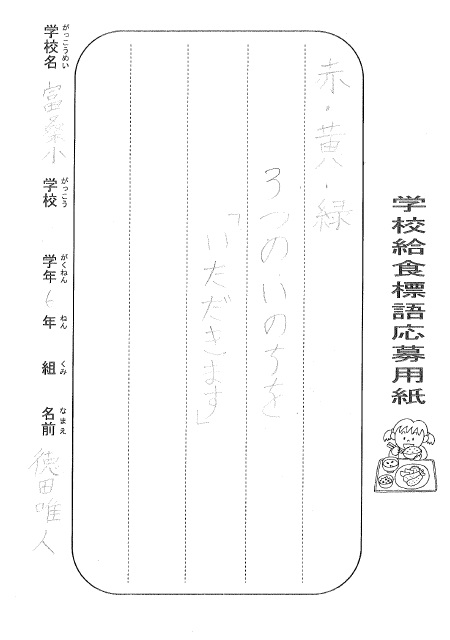 学校給食標語応募用紙
赤・黄・緑
3つのいのちを
「いただきます」
学校名 富桑小 学校 学年 6 年 組 名前 徳田唯人
がっこうめい がっこう がくねん ねん くみ なまえ